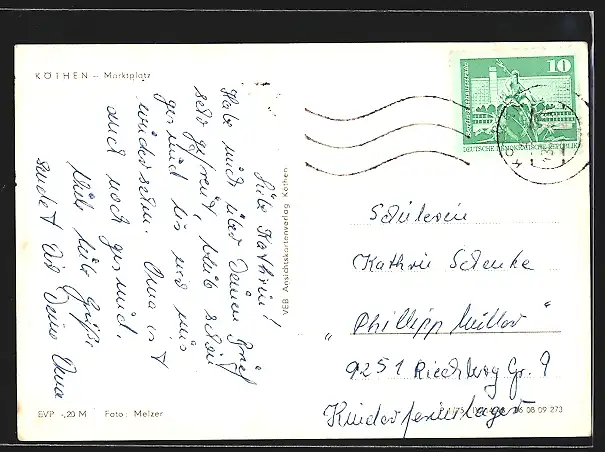 KÖTHEN – Marktplatz
Liebe Kathrin!
Habe mich über Deinen Brief
sehr gefreut, bleib schön
gesund bis wir uns
wiedersehn. Oma ist
auch noch gesund.
Viele liebe Grüße
sendet Dir Deine Oma
VEB Ansichtskartenverlag Köthen
EVP -,20 M Foto: Melzer
10
DEUTSCHE DEMOKRATISCHE REPUBLIK
Schülerin
Kathrin Schenke
"Phillipp Müller"
9251 Gr. 9
Kinderferienlager
08 09 273